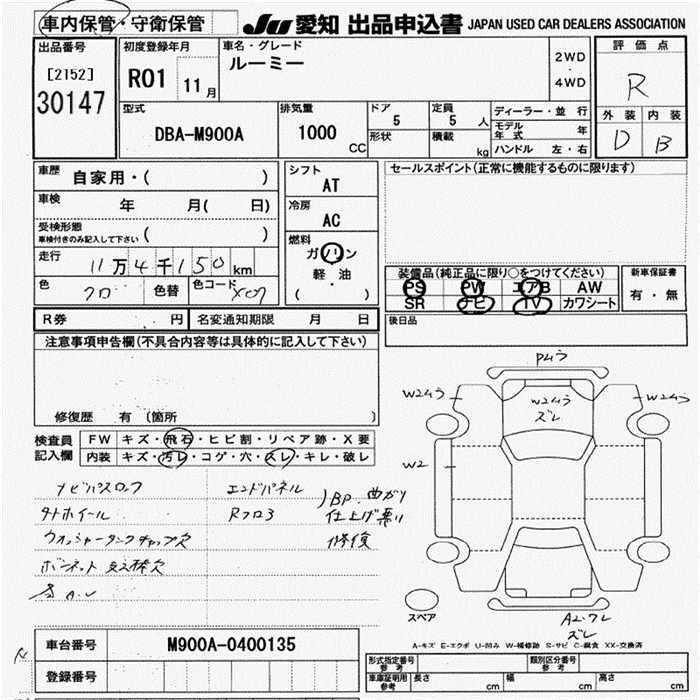 車内保管・守衛保管
JU 愛知 出品申込書 JAPAN USED CAR DEALERS ASSOCIATION
出品番号
[2152]
30147
初度登録年月
R01 11 月
車名・グレード
ルーミー
2WD
・
4WD
評価点
R
外装 内装
D B
型式
DBA-M900A
排気量
1000 CC
ドア
5
形状
定員
5 人
積載
kg
ディーラー・並行
モデル年式 年
ハンドル 左・右
車歴 自家用・( )
車検 年 月( 日)
受検形態
車検付きのみ記入して下さい ( )
走行
11万4千150km
色 クロ 色替 色コード X07
シフト
AT
冷房
AC
燃料
ガソリン
軽・油
( )
セールスポイント(正常に機能するものに限ります)
装備品(純正品に限り○をつけてください)
PS PW エアB AW
SR ナビ TV カワシート
新車保証書
有・無
後日品
R券 円 名変通知期限 月 日
注意事項申告欄(不具合内容等は具体的に記入して下さい)
修復歴 有 (箇所 )
検査員記入欄
FW キズ・飛石・ヒビ割・リペア跡・X要
内装 キズ・汚レ・コゲ・穴・スレ・キレ・破レ
ナビパスロック
タナホイール
ウォッシャータンクキャップ欠
ボーネット 交 欠
A.U
エンドパネル
Rフロ3
BP.曲がり
仕上げ悪い
修復
Pムラ
W2ムラ
W2ムラ
ズレ
W2ムラ
W2
スペア
A2.ワレ
ズレ
A-キズ E-エクボ U-凹み W-補修跡 S-サビ C-腐食 XX-交換済
車台番号 M900A-0400135
登録番号
形式指定番号
参考
類別区分番号
参考
車庫証明用
参考
長さ cm 幅 cm 高さ cm